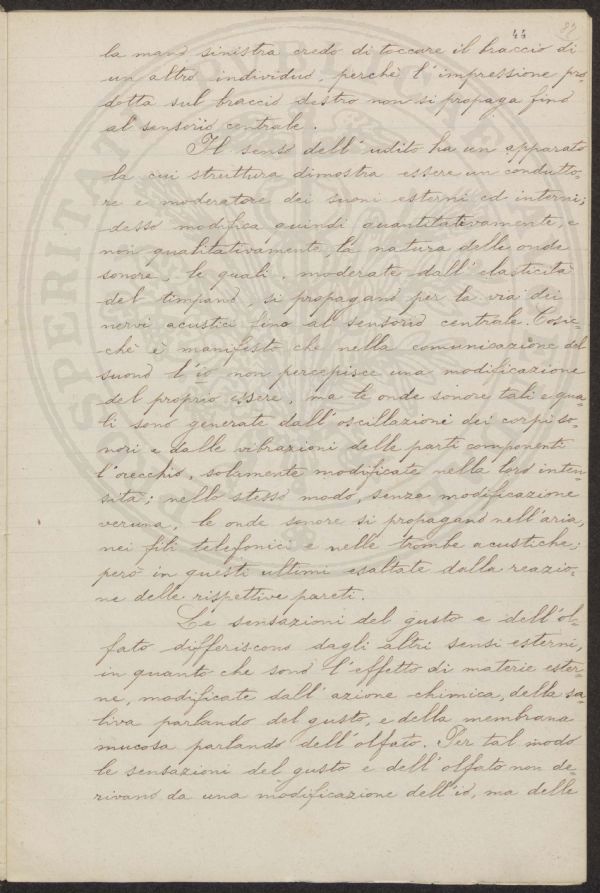 44
87
la mano sinistra credo di toccare il braccio di
un altro individuo, perchè l'impressione pro-
dotta sul braccio destro non si propaga fino
al sensorio centrale.
Il senso dell'udito ha un apparato
la cui struttura dimostra essere un condutto-
re e moderatore dei suoni esterni ed interni;
desso modifica quindi quantitativamente, e
non qualitativamente, la natura delle onde
sonore, le quali, moderate dall'elasticità
del timpano, si propagano per la via dei
nervi acustici fino al sensorio centrale. Cosic-
chè è manifesto che nella comunicazione del
suono l'io non percepisce una modificazione
del proprio essere, ma le onde sonore tali e qua-
li sono generate dall'oscillazioni dei corpi so-
nori e dalle vibrazioni delle parti componenti
l'orecchio, solamente modificate nella loro inten-
sità; nello stesso modo, senza modificazione
veruna, le onde sonore si propagano nell'aria,
nei fili telefonici e nelle trombe acustiche;
però in questi ultimi esaltate dalla reazio-
ne delle rispettive pareti.
Le sensazioni del gusto e dell'ol-
fato differiscono dagli altri sensi esterni,
in quanto che sono l'effetto di materie ester-
ne, modificate dall'azione chimica, della sa-
liva parlando del gusto, e della membrana
mucosa parlando dell'olfato. Per tal modo
le sensazioni del gusto e dell'olfato non de-
rivano da una modificazione dell'io, ma delle